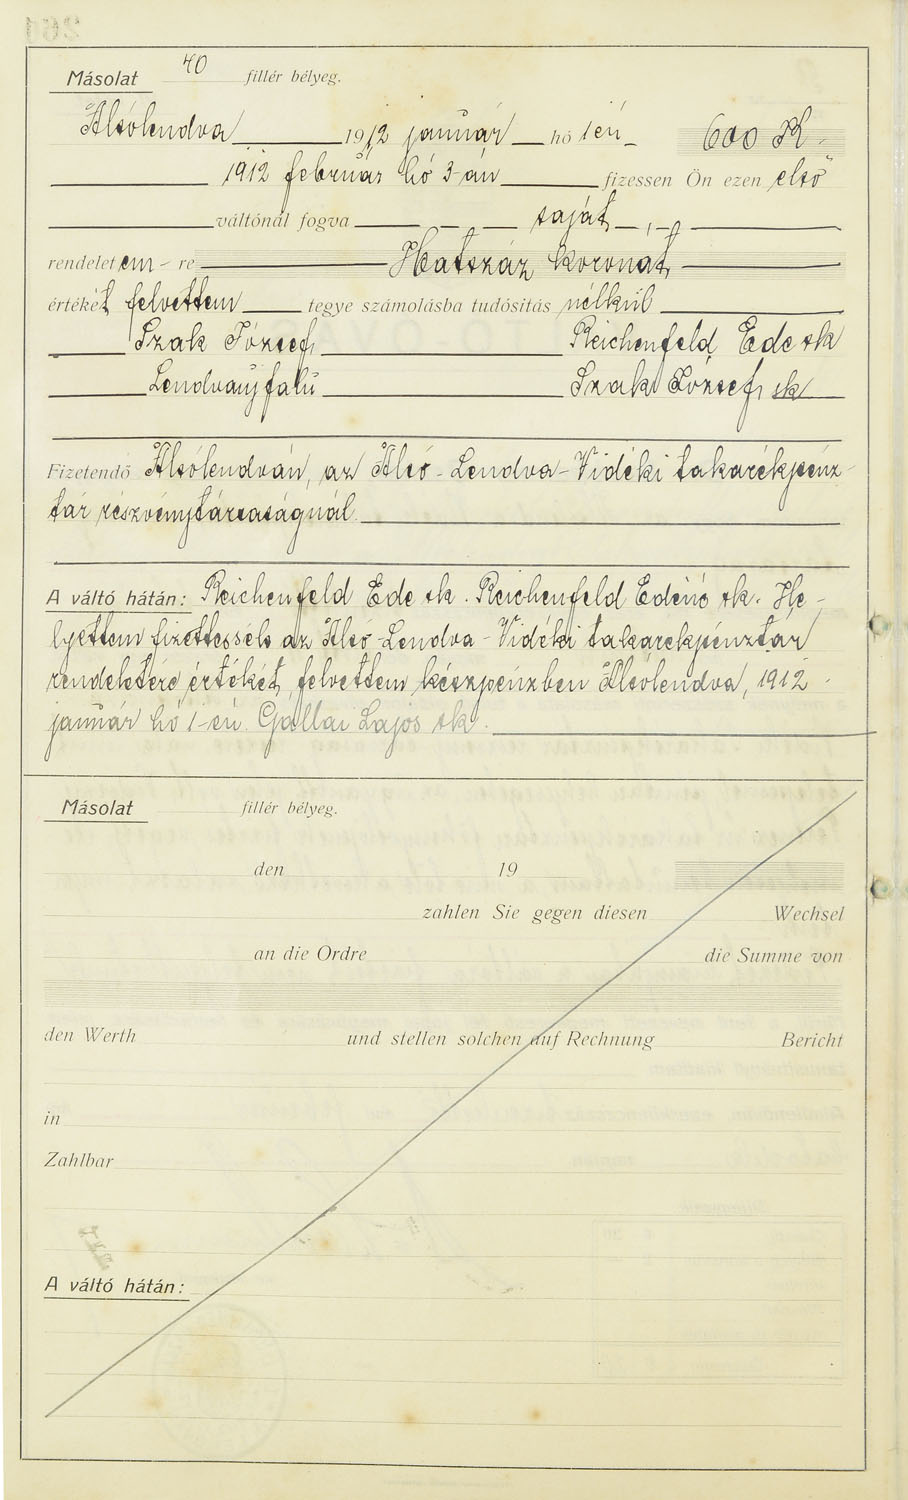 Másolat 40 fillér bélyeg.
Alsólendva 1912 január hó 1én 600 K
1912 február hó 3-án fizessen Ön ezen első
váltónál fogva saját
rendeletem-re Hatszáz koronát
értékét felvettem tegye számolásba tudósítás nélkül
Szak József Reichenfeld Ede sk
Lendvaújfalu Szak József sk
Fizetendő Alsólendván, az Alsó-Lendva-Vidéki takarékpénz-
tár részvénytársaságnál.
A váltó hátán: Reichenfeld Ede sk. Reichenfeld Edéné sk. He-
lyettem fizettessék az Alsó-Lendva-Vidéki takarékpénztár
rendeletére értékét felvettem készpénzben Alsólendva, 1912
január hó 1-én. Gállai Lajos sk.
Másolat fillér bélyeg.
den 19
zahlen Sie gegen diesen Wechsel
an die Ordre die Summe von
den Werth und stellen solchen auf Rechnung Bericht
in
Zahlbar
A váltó hátán: